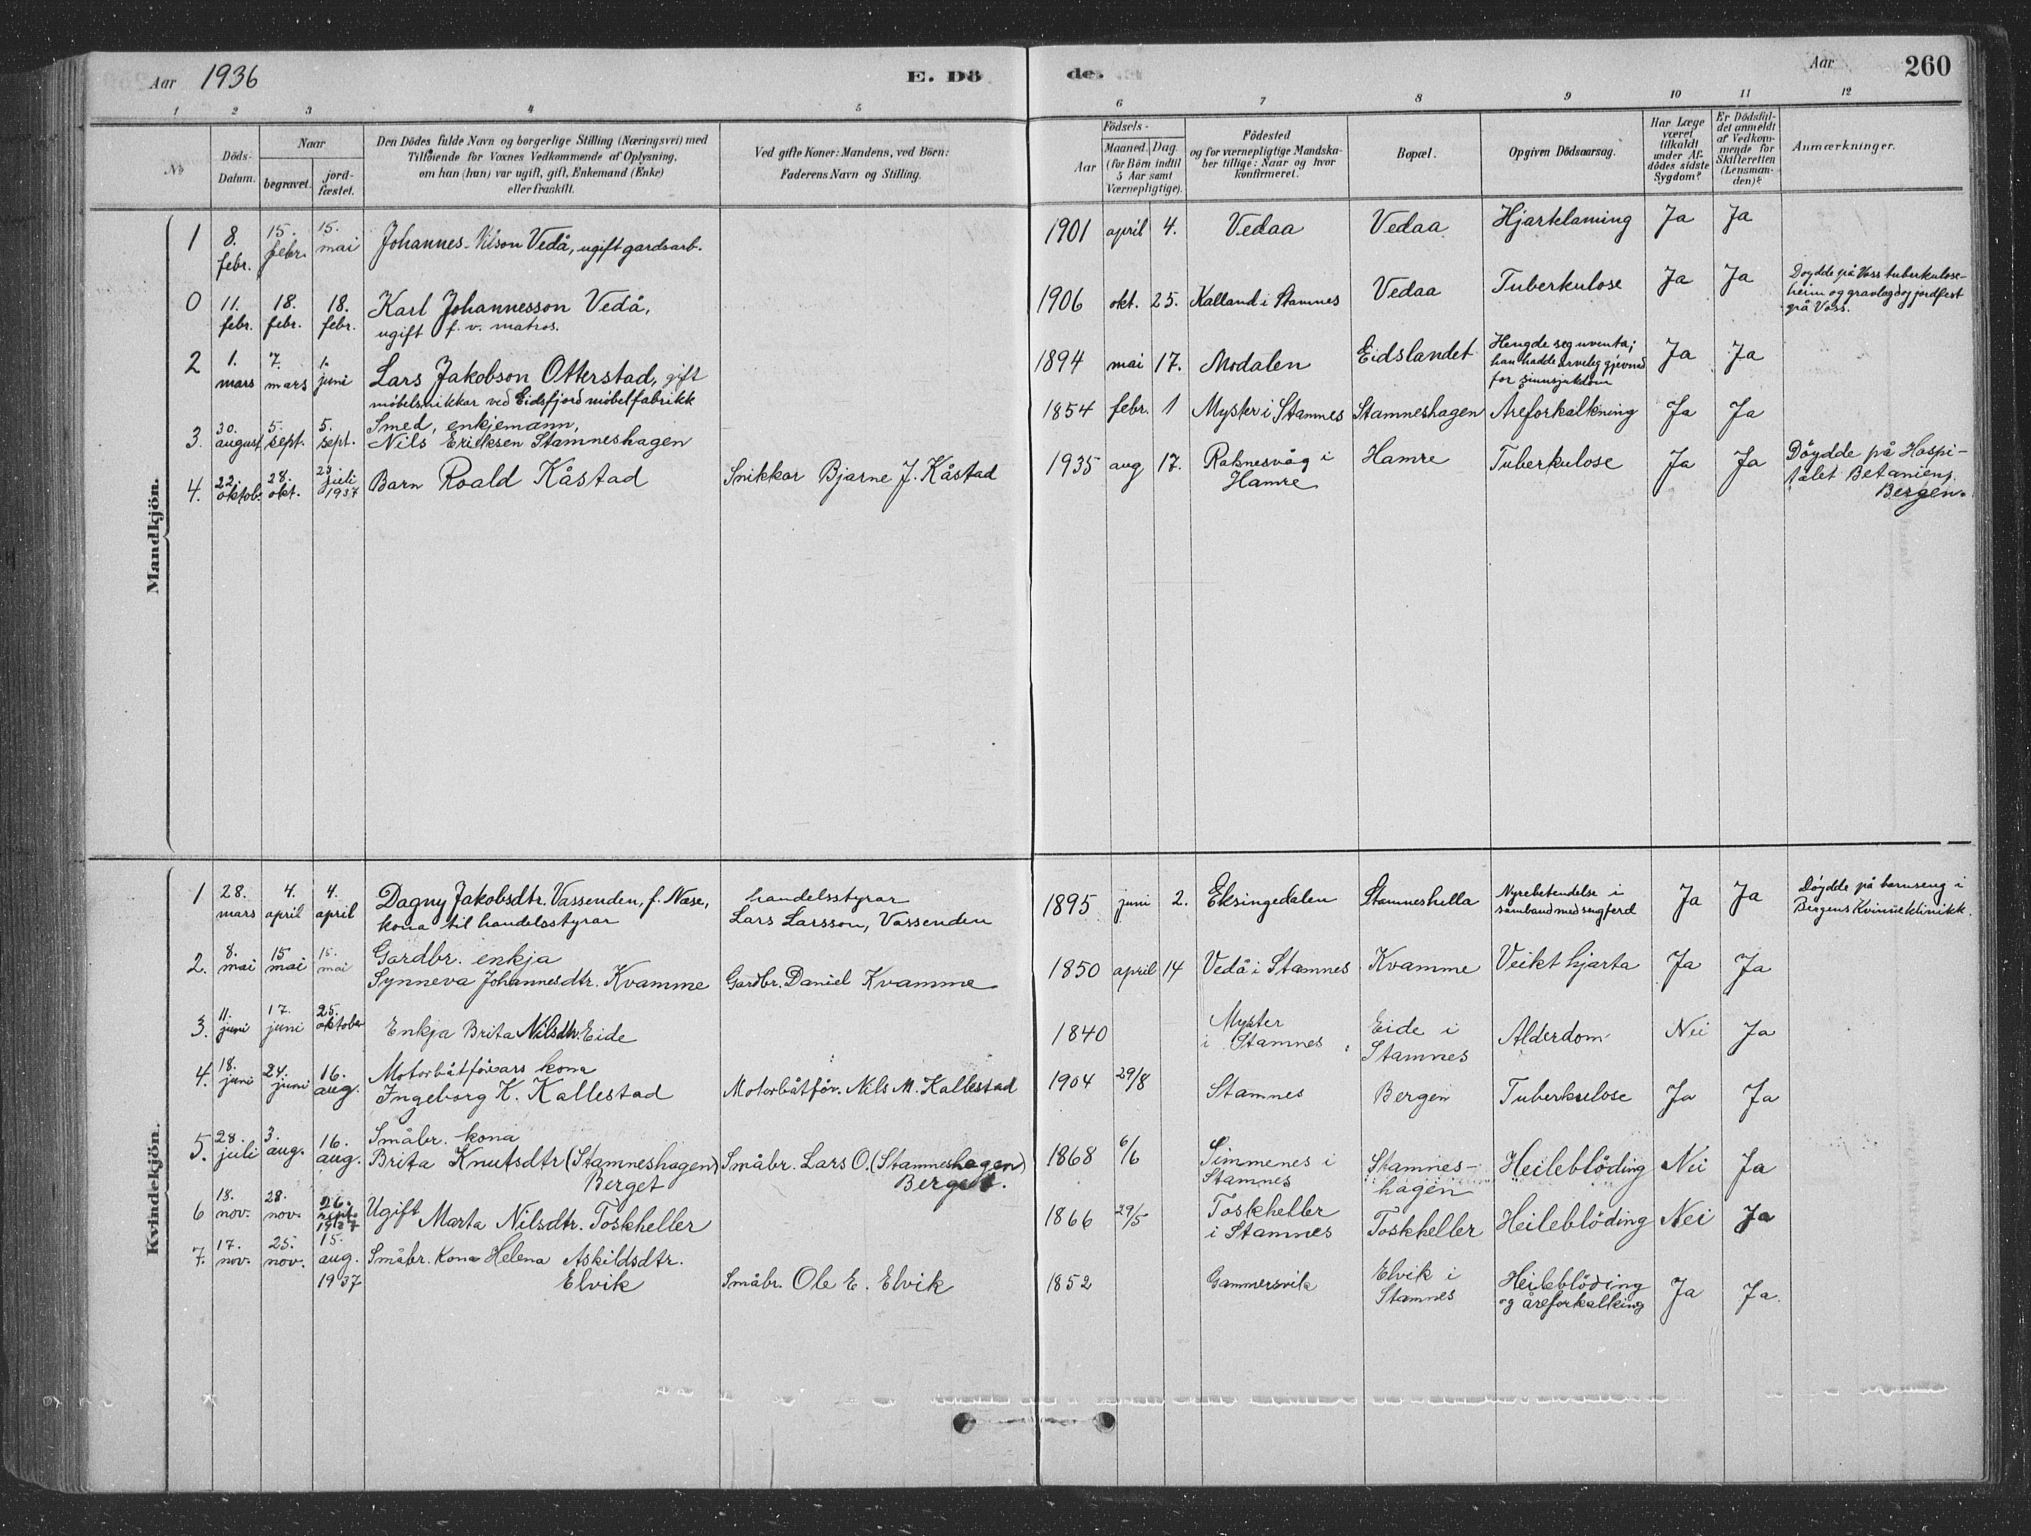 Aar 1936 E. Dö de. Aar 260
1 2 3 4 5 6 7 8 9 10 11 12
No
Döds-
Datum.
Naar
begravet.
jord-
fæstet.
Den Dödes fulde Navn og borgerlige Stilling (Næringsvei) med
Tilföiende for Voxnes Vedkommende af Oplysning,
om han (hun) var ugift, gift, Enkemand (Enke)
eller fraskilt.
Ved gifte Koner: Mandens, ved Börn:
Faderens Navn og Stilling.
Födsels-
Aar
Maaned. Dag.
(for Börn indtil
5 Aar samt
Værnepligtige).
Födested
og for værnepligtige Mandska-
ber tillige: Naar og hvor
konfirmeret.
Bopæl.
Opgiven Dödsaarsag.
Har Læge
været
tilkaldt
under Af-
dödes sidste
Sygdom?
Er Dödsfal-
det anmeldt
af Vedkom-
mende for
Skifteretten
(Lensman-
den)?
Anmærkninger.
Mandkjön.
1 8. febr. 15. febr. 15. mai Johannes Nilson Vedå, ugift gardsarb. 1901 april 4. Vedaa Vedaa Hjartelaming Ja Ja
0 11. febr. 18. febr. 18. febr. Karl Johannesson Vedå, 1906 okt. 25. Kalland i Stamnes Vedaa Tuberkulose Ja Ja Döydde på Voss tuberkulose-
ugift f. v. matros. heim og gravlagd og jordfest
på Voss.
2 1. mars 7. mars 1. juni Lars Jakobson Otterstad, gift 1894 mai 17. Modalen Eidslandet Hengde seg uventa; Ja Ja
møbelsnikkar ved Eidsfjord møbelfabrikk han hadde arveleg gjevnad
for sinnsjukdom
3. 30. august 5. sept. 5. sept. Smed, enkjemann, 1854 febr. 1 Myster i Stamnes Stamneshagen Åreforkalkning Ja Ja
Nils Eriksen Stamneshagen
4. 22. oktob. 28. okt. 23. juli 1937 Barn Roald Kåstad Snikkar Bjarne J. Kåstad 1935 aug 17. Raknesvåg i Hamre Tuberkulose Ja Ja Döydde på Hospi-
Hamre talet Betanien,
Bergen.
Kvindekjön.
1 28. mars 4. april 4. april Dagny Jakobsdtr. Vassenden, f. Nese, handelsstyrar 1895 juni 2. Eksingedalen Stamneshella Nyrebetendelse i Ja Ja Döydde på barnseng i
kona til handelsstyrar Lars Larsson, Vassenden samband med sugferd Bergens Kvinneklinikk.
2. 8. mai 15 mai 15. mai Gardbr. enkja
Synneva Johannesdtr. Kvamme Gardbr. Daniel Kvamme 1850 april 14 Vedå i Stamnes Kvamme Veikt hjarta Ja Ja
3. 11. juni 17. juni 25. oktober Enkja Brita Nilsdtr. Eide 1840 Myster Eide i Alderdom Nei Ja
i Stamnes Stamnes
4. 18. juni 24. juni 16. aug. Motorbåtförars kona
Ingeborg K. Kallestad Motorbåtför. Nils M. Kallestad 1904 29/8 Stamnes Bergen Tuberkulose Ja Ja
5. 28. juli 3. aug. 16. aug. Småbr. kona
Brita Knutsdtr (Stamneshagen) Småbr. Lars O. (Stamneshagen) 1868 6/6 Simmenes i Stamnes- Heileblöding Nei Ja
Berget Berget. Stamnes hagen
6 18. nov. 28. nov. 26. sept. 1937 Ugift Marta Nilsdtr. Toskheller 1866 29/5 Toskheller Toskheller Heileblöding Nei Ja
i Stamnes
7. 17. nov. 25. nov. 15. aug. 1937 Småbr. Kona Helena Askildsdtr.
Elvik Småbr. Ole E. Elvik 1852 Gammersvik Elvik i Heileblöding Ja Ja
Stamnes og åreforkalking